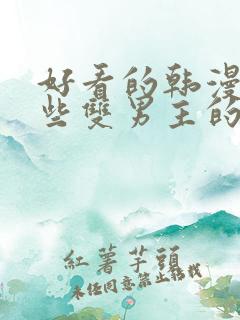 好看的韩漫
些雙男主的
紅薯芋頭
未经同意禁止转载